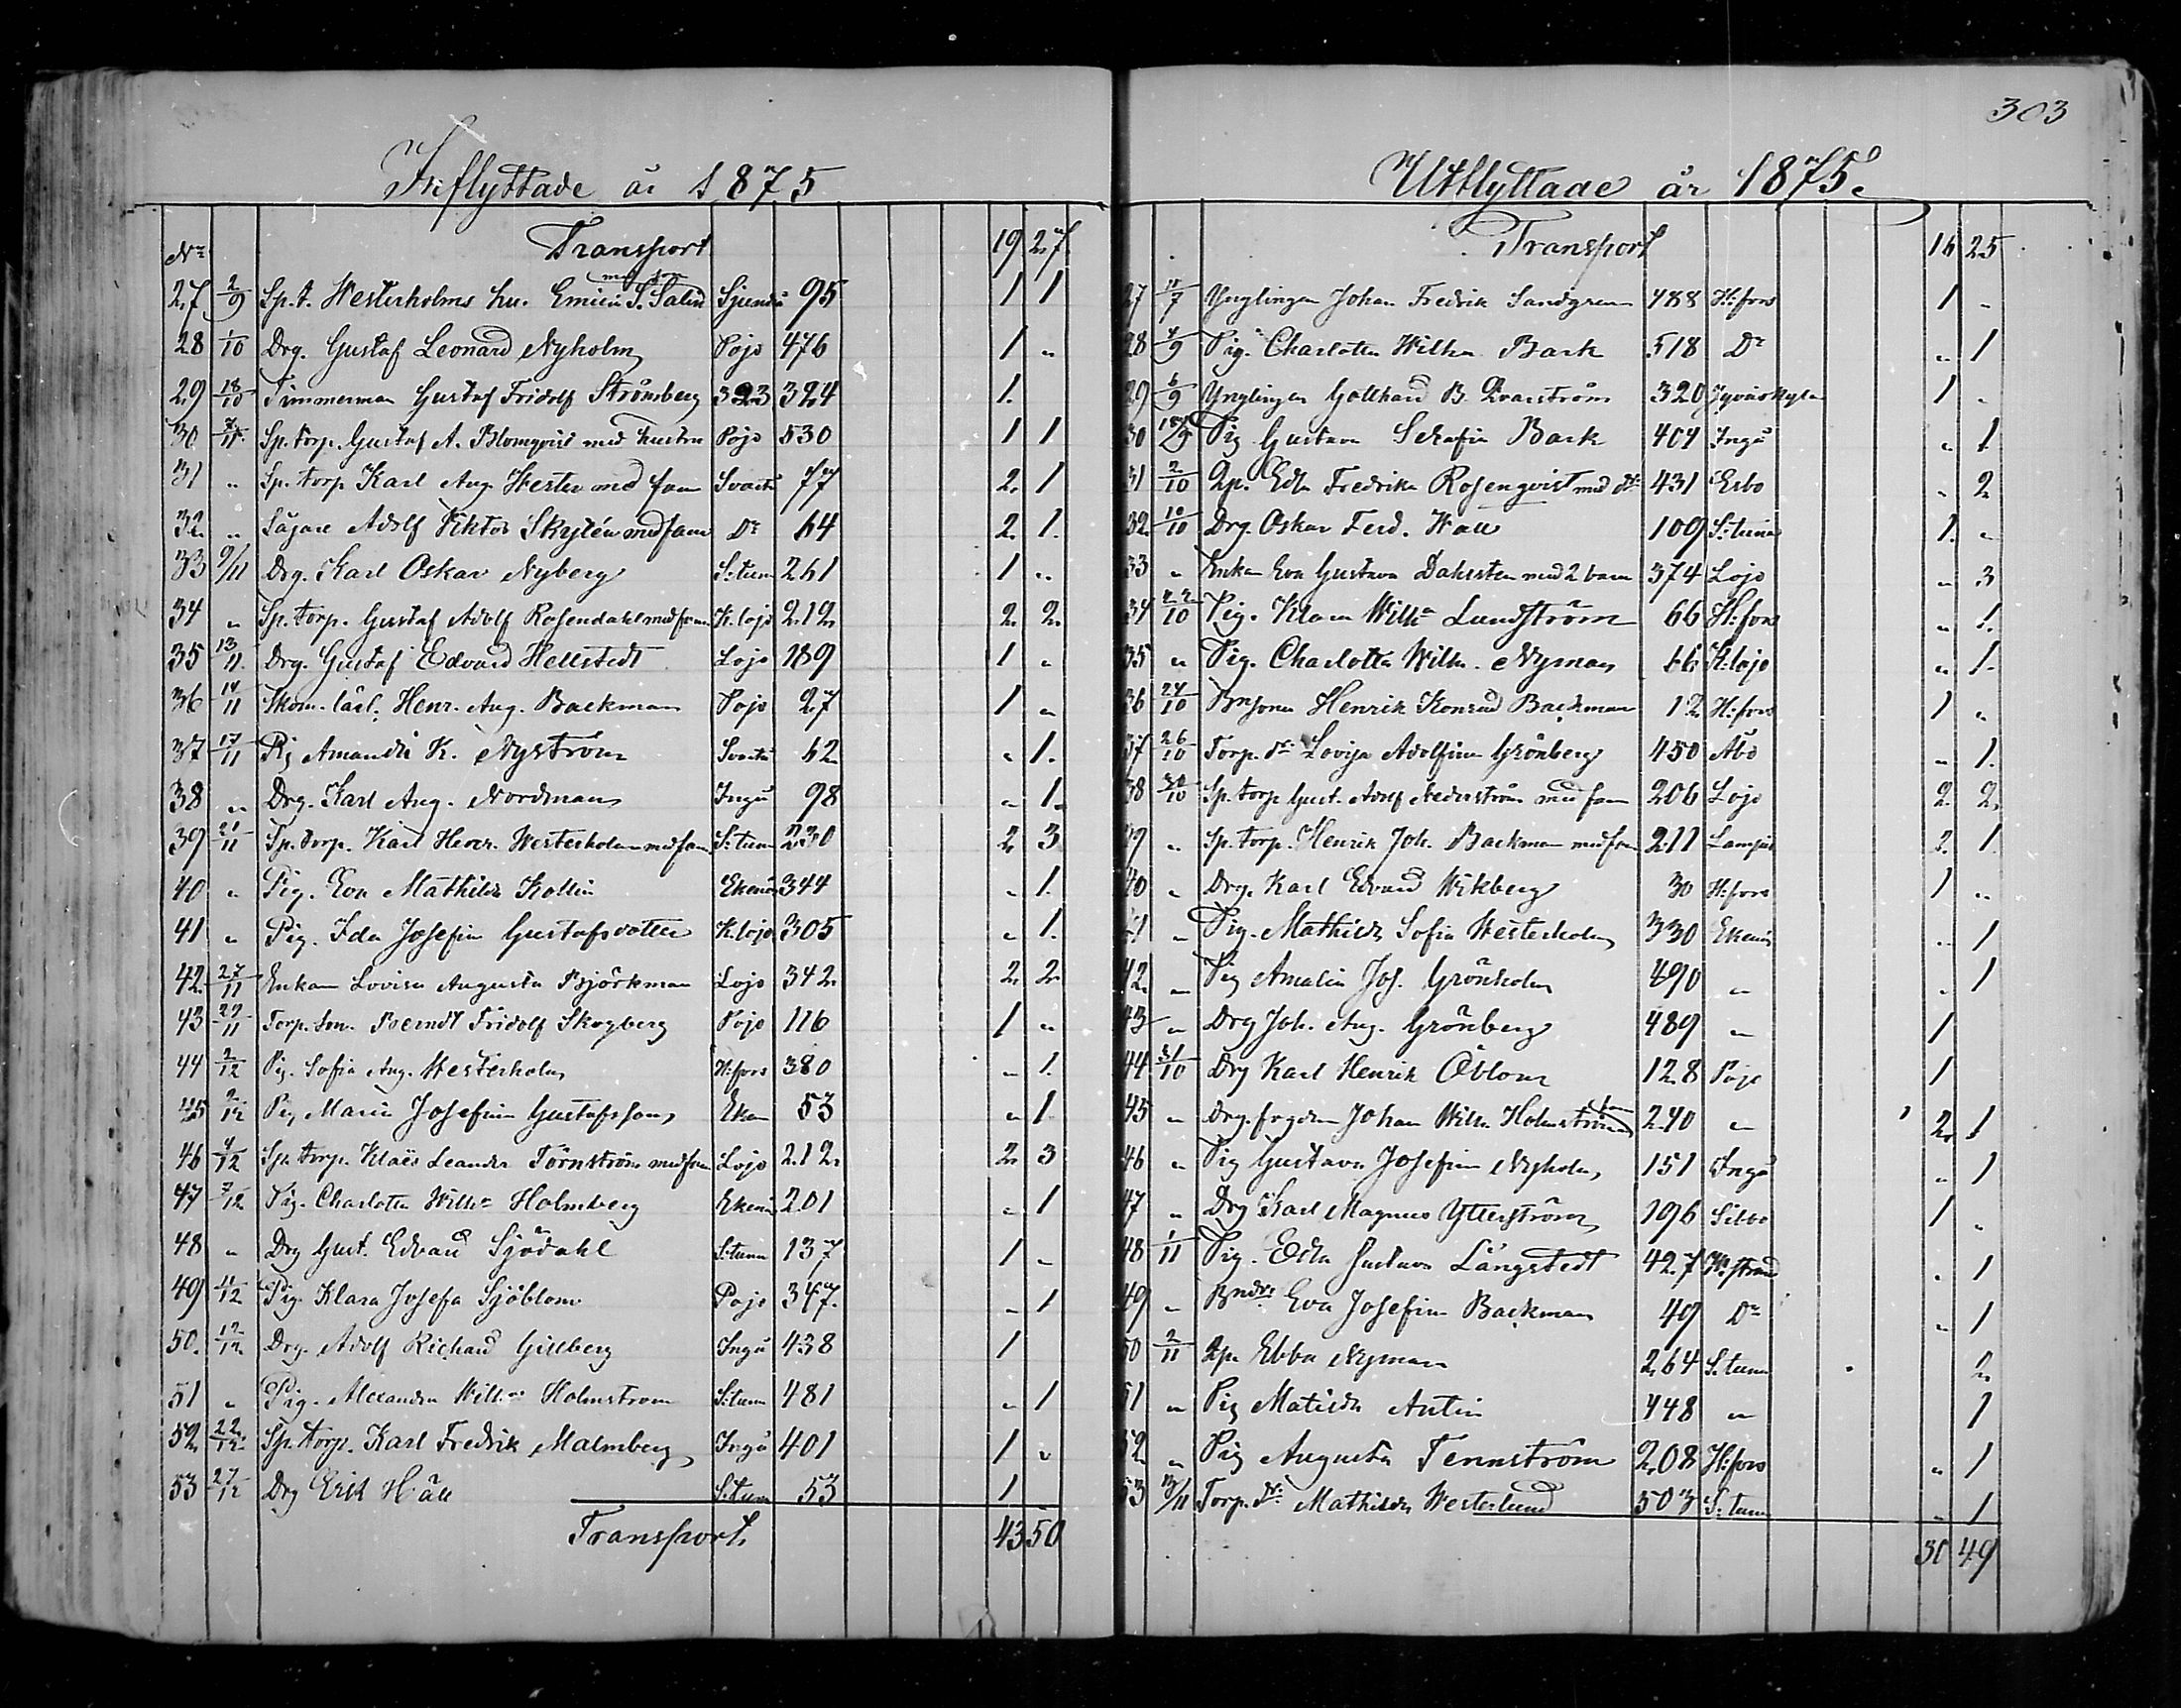 303
Inflyttade år 1875
No Transport 19 27
med son
27 2/9 Sp.t. Westerholms hu. Emilia S. Salin Sjundeå 95 1 1
28 1/10 Drg. Gustaf Leonard Nyholm Pojo 476 1 "
29 18/10 Timmerman Gustaf Fridolf Strömberg 323 324 1.
30 7/11 Sp. torp. Gustaf A. Blomqvist med hustru Pojo 530 1 1
31 " Sp. torp Karl Aug. Wester med fam Svartå 77 2. 1
32. " Sågare Adolf Viktor Skytén med fam Do 64 2. 1.
33 9/11 Drg. Karl Oskar Nyberg S:tuna 261 1 "
34 " Sp. torp. Gustaf Adolf Rosendahl med fam. K. lojo 212. 2. 2.
35 13/11. Drg. Gustaf Edvard Hellstedt Lojo 189 1 "
36 14/11 Skom. lärl. Henr. Aug. Backman Pojo 27 1 "
37 17/11 Pig Amanda K. Nyström Svartå 62 " 1.
38 " Drg. Karl Aug. Nordman Ingå 98 " 1.
39 21/11 Sp. torp. Karl Henr. Westerholm med fam. S:tuna 230 2. 3
40 " Pig. Eva Mathilda Kollin Ekenäs 344 " 1.
41 " Pig. Ida Josefina Gustafsdotter K. lojo 305 " 1.
42. 27/11 Enkan Lovisa Augusta Björkman Lojo 342. 2. 2
43 29/11 Torp. son. Berndt Fridolf Skogberg Pojo 116 1 "
44 2/12 Pig. Sofia Aug. Westerholm H:fors 380 " 1.
45 2/12 Pig. Maria Josefina Gustafsson Eken 53 " 1
46 4/12 Sp. torp. Klaës Leander Törnström med fam Lojo 212. 2. 3
47 7/12 Pig. Charlotta Wilha Holmberg Ekenäs 201 " 1
48 " Drg Gust. Edvard Sjödahl S:tuna 137 1 "
49 11/12 Pig. Klara Josefa Sjöblom Pojo 347. " 1
50. 12/12 Drg. Adolf Richard Gillberg Ingå 438 1
51 " Pig. Alexandra Wilha Holmstrom S:tuna 481 " 1
52. 22/12 Sp. torp. Karl Fredrik Malmberg Ingå 401 1 "
53 27/12 Drg Erik Häll S:tuna 53 1
Transport. 43 50
Utflyttade år 1875.
Transport 16 25
27 11/7 Ynglingen Johan Fredrik Sandgren 488 H:fors 1 "
28 4/9 Pig. Charlotta Wilhа Back 518 Do " 1
29 6/9 Ynglingen Gotthard B. Qvarström 320 Jyväskylä 1 "
30 Pig Gustava Serafia Back 404 Ingå " 1
31 2/10 Qp. Edla Fredrika Rosenqvist med dr 431 Esbo " 2
32. 10/10 Drg. Oskar Ferd. Wall 109 S:tuna 1. "
33 " Enkan Eva Gustava Dahlsten med 2 barn 374 Lojo " 3
34 22/10 Pig. Klara Wilha Lundström 66 H:fors " 1.
35 " Pig. Charlotta Wilh. Nyman 66 K:lojo " 1.
36 24/10 Bnsonen Henrik Konrad Backman 12 H:fors 1 "
37 26/10 Torp. dr Lovisa Adolfina Grönberg 450 Åbo " 1.
38 30/10 Sp. torp Gust. Adolf Nederström med fam 206 Lojo 2. 2.
39 " Sp. torp. Henrik Joh. Backman med fam 211 Lampis 2. 1.
40 " Drg. Karl Edvard Wikberg 30 H:fors 1 "
41 " Pig. Mathilda Sofia Westerholm 330 Ekenäs " 1
42. " Pig Amalia Jos. Grönholm 490 " " 1
43 " Drg Joh. Aug. Grönberg 489 " 1
44 31/10 Drg Karl Henrik Öblom 128 Pojo 1
fam
45 " Drg. fogden Johan Wilh. Holmström 240 " 2. 1
46 " Pig Gustava Josefina Nyholm 151 Ingå " 1
47 " Drg Karl Magnus Ytterström 196 Sibbo 1 "
48 1/11 Pig. Edla Gustava Långstedt 427 " 1
49 " Bndr Eva Josefina Backman 49 Do " 1
50 2/11 Qp. Ebba Nyman 264 S:tuna 2.
51 " Pig Matilda Antin 448 " 1
52. " Pig Augusta Tennström 208 H:fors " 1
53 13/11 Torp. dr Mathilda Westerlund 503 S:tuna " 1
30 49